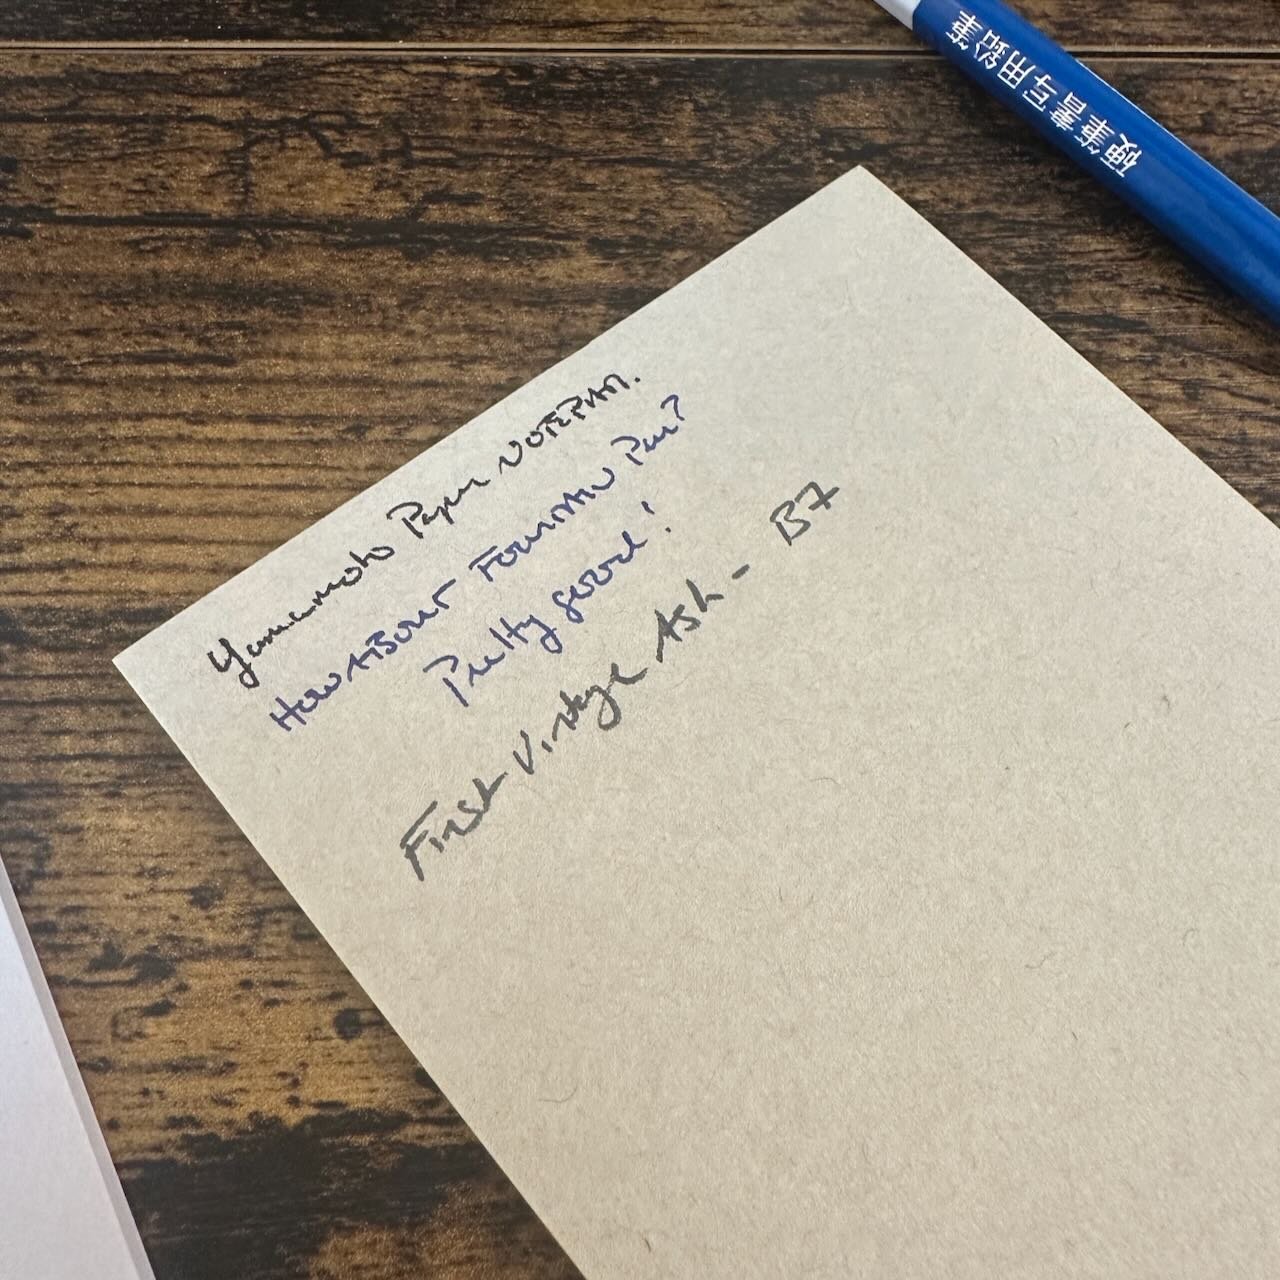 硬筆書写用鉛筆
Yamamoto Paper NOTEPAD.
How ABOUT FOUNTAIN Pen?
Pretty good!
First Vintage Ash - B7